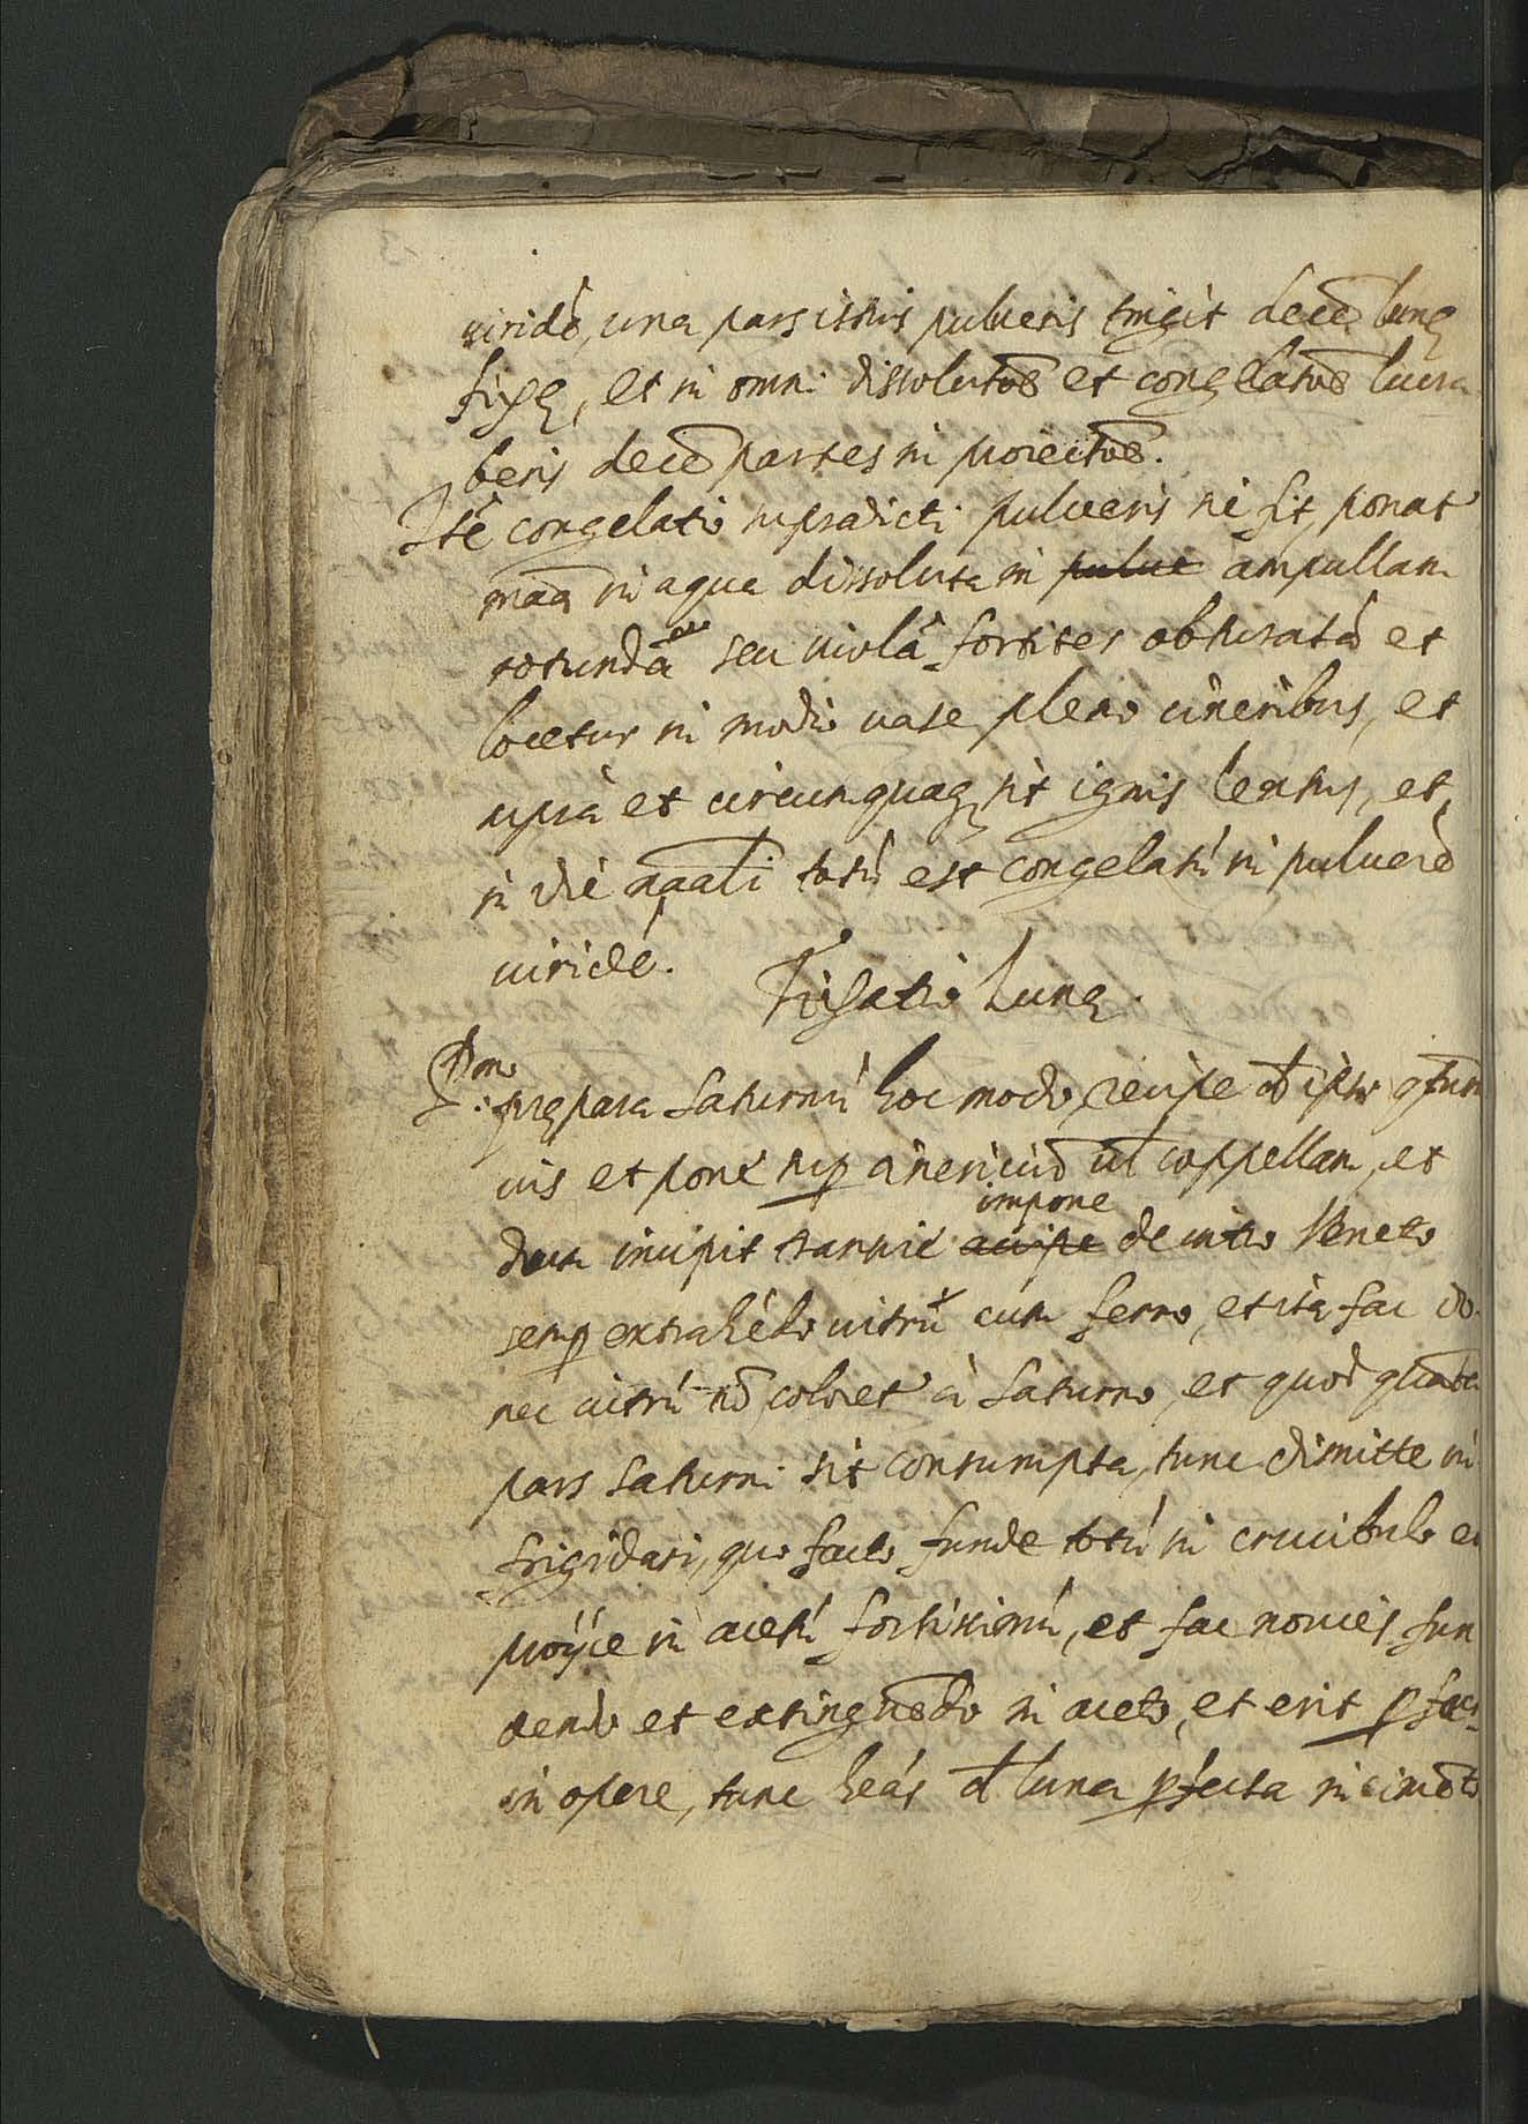 uiridē, una pars istius pulueris tingit decē lunę
fixę, et in omni dissolutōe et congelatōe lucra
beris decē partes in proiectōe.
Itē congelatio supradicti pulueris sic fit, ponat'
māa in aqua dissoluta in pulue ampullam
rotundā seu uiolā fortiter obturatā et
locetur in modio uase pleno cineribus, et
suprà et circumquaq; sit ignis lentus, et
in die nāali totū est congelatū in puluerē
uiridē.
Fixatio Lunę.
Pon
prępara Saturnū hoc modo, recipe d ipso qtum
uis et pone sup cinericiū ul coppellam, et
impone
dum incipit transire accipe de uitro Veneto
semp extrahēdo uitrū cum ferro, et ita fac do
nec uitrū nō coloret' à Saturno, et quod quarta
pars Saturni sit consumpta, tunc dimitte in
frigidari, quo facto funde totū in crucibulo et
proijce in acetū fortissimū, et fac nouies fun
dendo et extinguēdo in aceto, et erit pfect
in opere, tunc heās d luna pfecta in cimēto